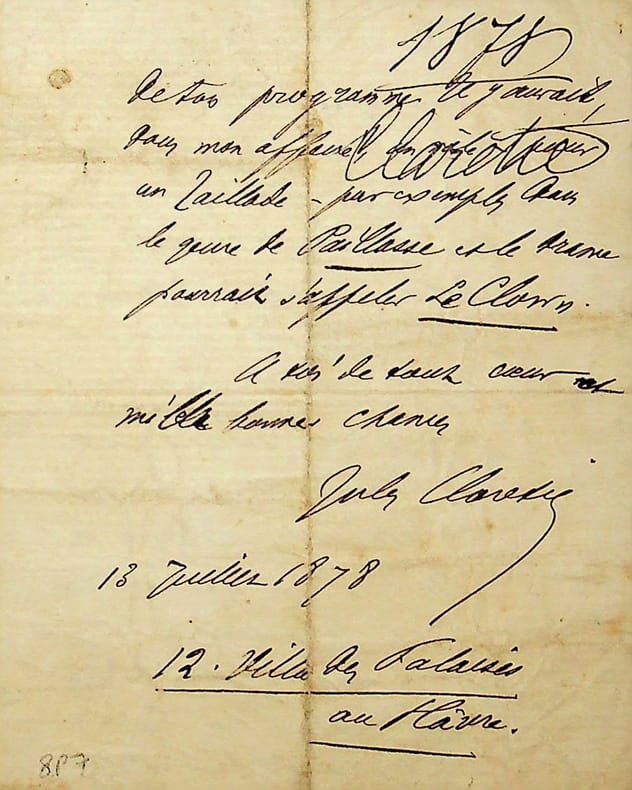 1878
de ton programme. Il y aurait,
dans mon affaire, un rôle pour
Claretie
un Taillade – par exemple dans
le genre de Paillasse et le drame
pourrait s'appeler Le Clown.
A toi de tout cœur et
mille bonnes chances
Jules Claretie
13 Juillet 1878
12. Villa des Falaises
au Hâvre.
8P7